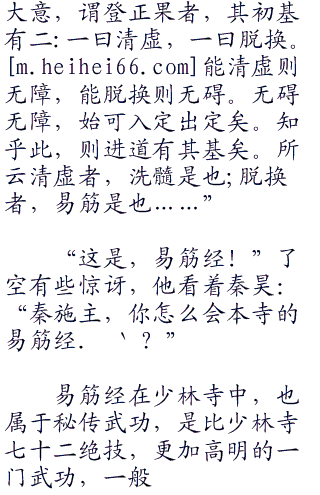 大意，谓登正果者，其初基
有二:一曰清虚，一曰脱换。
[m.heihei66.com]能清虚则
无障，能脱换则无碍。无碍
无障，始可入定出定矣。知
乎此，则进道有其基矣。所
云清虚者，洗髓是也;脱换
者，易筋是也……”
“这是，易筋经！”了
空有些惊讶，他看着秦昊：
“秦施主，你怎么会本寺的
易筋经．｀？”
易筋经在少林寺中，也
属于秘传武功，是比少林寺
七十二绝技，更加高明的一
门武功，一般